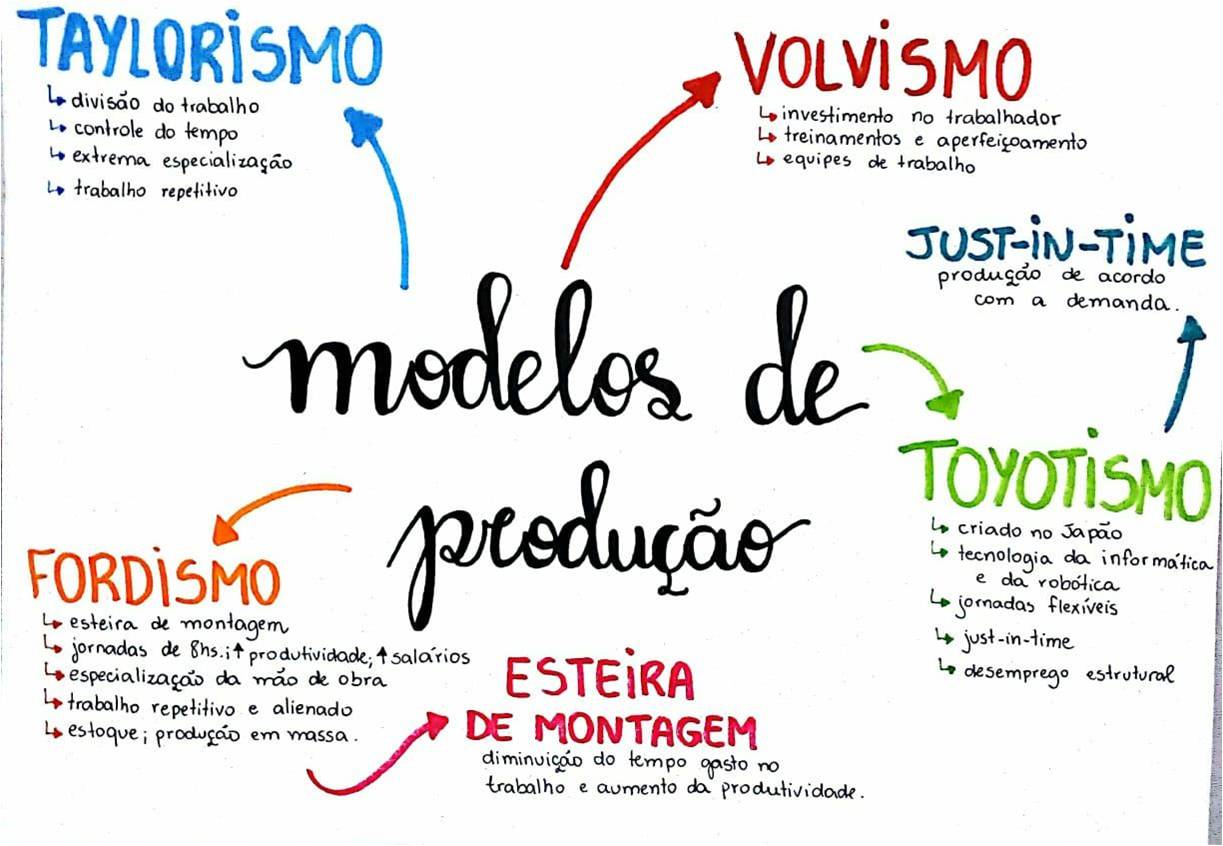 TAYLORiSMO
↳ divisão do trabalho
↳ controle do tempo
↳ extrema especialização
↳ trabalho repetitivo
VOLViSMO
↳ investimento no trabalhador
↳ treinamentos e aperfeiçoamento
↳ equipes de trabalho
JUST-iN-TiME
produção de acordo
com a demanda.
modelos de
produção
TOYOTiSMO
↳ criado no Japão
↳ tecnologia da informática
e da robótica
↳ jornadas flexíveis
↳ just-in-time
↳ desemprego estrutural
FORDiSMO
↳ esteira de montagem
↳ jornadas de 8hs.; ↑ produtividade; ↑ salários
↳ especialização da mão de obra
↳ trabalho repetitivo e alienado
↳ estoque; produção em massa.
ESTEiRA
DE MONTAGEM
diminuição do tempo gasto no
trabalho e aumento da produtividade.